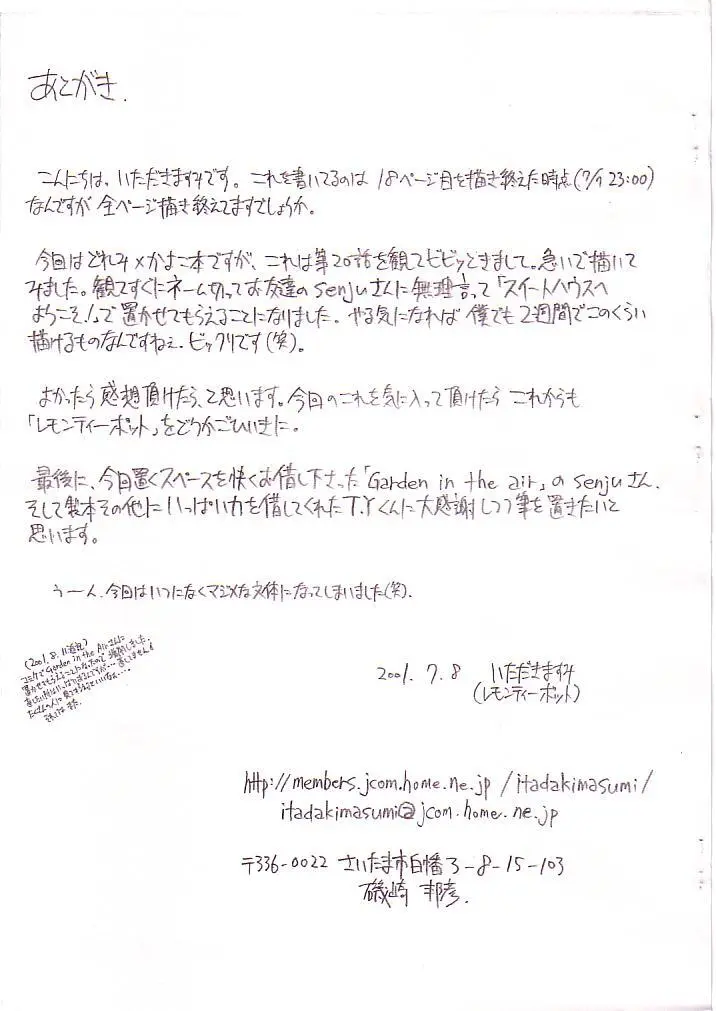 あとがき.
こんにちは、いただきますみです。これを書いてるのは 18ページ目を描き終えた時点(7/7 23:00)
なんですが 全ページ描き終えてますでしょうか。
今回はどれみ×かよこ本ですが、これは第20話を観てビビッときまして。急いで描いて
みました。観てすぐにネーム切ってお友達のsenjuさんに無理言って「スイートハウスへ
ようこそ!」で置かせてもらえることになりました。やる気になれば 僕でも2週間でこのくらい
描けるものなんですねぇ.ビックリです(笑)。
よかったら感想頂けたら、と思います。今回のこれを気に入って頂けたら これからも
「レモンティーポット」をどうかごひいきに。
最後に、今回置くスペースを快くお借し下さった「Garden in the air」のsenjuさん、
そして製本その他に いっぱい力を借してくれたT.Yくんに大感謝しつつ筆を置きたいと
思います。
うーん.今回はいつになくマジメな文体になってしまいました(笑).
(2001.8.11追記)
コミケで"Garden in the Air"さんに
置かせてもらえることになったので 増刷しました。
2001. 7. 8 いただきますみ
(レモンティーポット)
http://members.jcom.home.ne.jp/itadakimasumi/
itadakimasumi@jcom.home.ne.jp
〒336-0022 さいたま市白幡3-8-15-103
磯崎 邦彦.